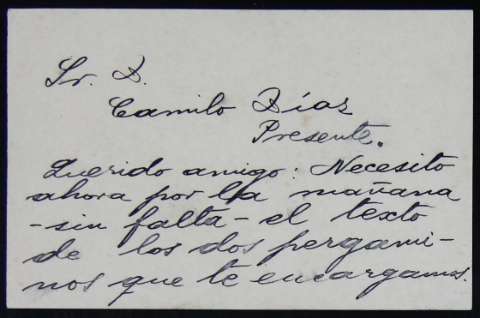 Sr. D.
Camilo Díaz
Presente.
Querido amigo: Necesito
ahora por la mañana
-sin falta- el texto
de los dos pergami-
nos que te encargamos.